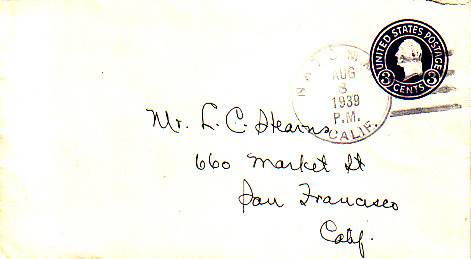 UNITED STATES POSTAGE
3 CENTS 3
NATOMA
AUG
8
1939
P.M.
CALIF.
Mr. L. C. Stearns
660 Market St
San Francisco
Calif.